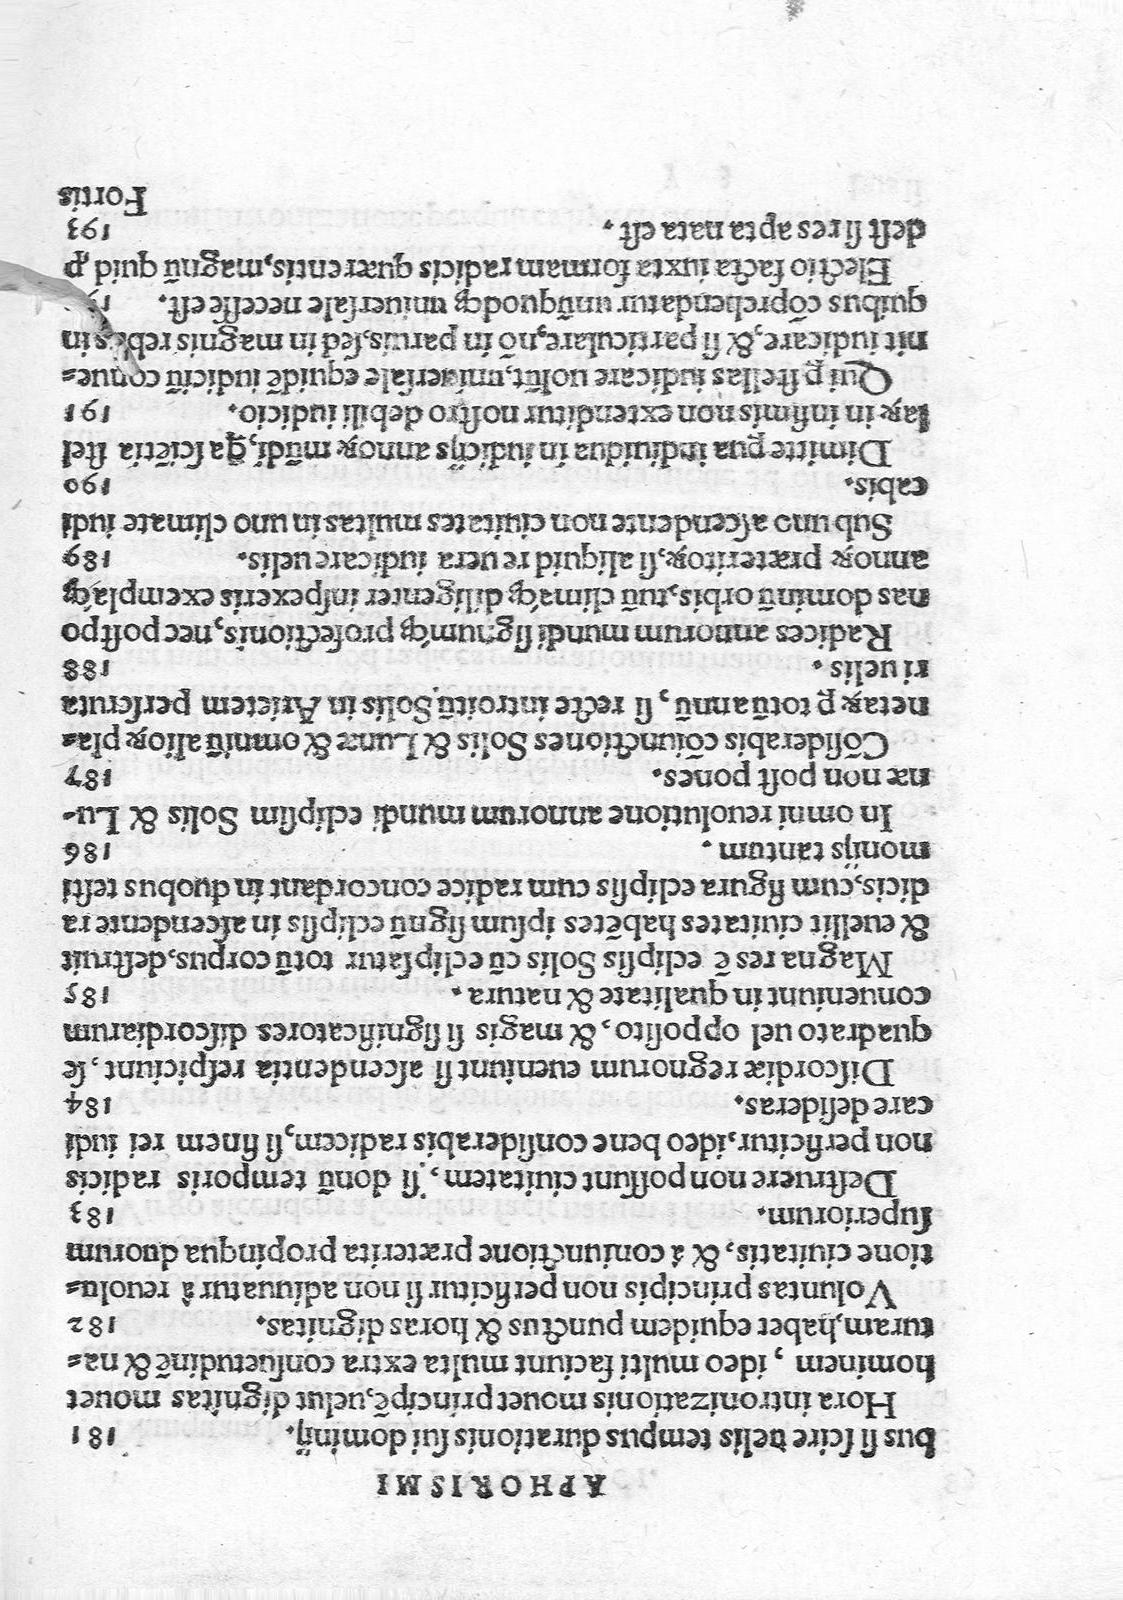 APHORISMI
bus si scire uelis tempus durationis sui dominij. 181
Hora intronizationis mouet principē, uelut dignitas mouet
hominem, ideo multi faciunt multa extra consuetudinē & na=
turam, habet equidem punctus & horas dignitas. 182
Voluntas principis non perficitur si non adiuuatur à reuolu=
tione ciuitatis, & à coniunctione præterita propinqua duorum
superiorum. 183
Destruere non possunt ciuitatem, si donũ temporis radicis
non perficitur, ideo bene considerabis radicem, si finem rei iudi
care desideras. 184
Discordiæ regnorum eueniunt si ascendentia respiciunt, se
quadrato uel opposito, & magis si significatores discordiarum
conueniunt in qualitate & natura. 185
Magna res ē eclipsis Solis cũ eclipsatur totũ corpus, destruit
& euellit ciuitates habētes ipsum signũ eclipsis in ascendente ra
dicis, cum figura eclipsis cum radice concordant in duobus testi
monijs tantum. 186
In omni reuolutione annorum mundi eclipsim Solis & Lu-
næ non post pones. 187
Cōsiderabis cōiunctiones Solis & Lunæ & omniũ alioꝝ pla=
netaꝝ ꝑ totũ annũ, si recte introitũ Solis in Arietem perscruta
ri uelis. 188
Radices annorum mundi signumq́ꝫ profectionis, nec postpo
nas dominũ orbis, tuũ climaq́ꝫ diligenter inspexeris exemplaq́ꝫ
annoꝝ præteritoꝝ, si aliquid re uera iudicare uelis. 189
Sub uno ascendente non ciuitates multas in uno climate iudi
cabis. 190
Dimitte ꝑua indiuidua in iudicijs annoꝝ mũdi, ꝗa sciētia stel
laꝝ in infimis non extenditur nostro debili iudicio. 191
Qui ꝑ stellas iudicare uolũt, uniuersale equidē iudiciũ conue=
nit iudicare, & si particulare, nō in paruis, sed in magnis rebus in
quibus cōprehendatur unũquodqꝫ uniuersale necesse est.
Electio facta iuxta formam radicis quærentis, magnũ quid ꝓ
dest si res apta nata est. 193
Fortis